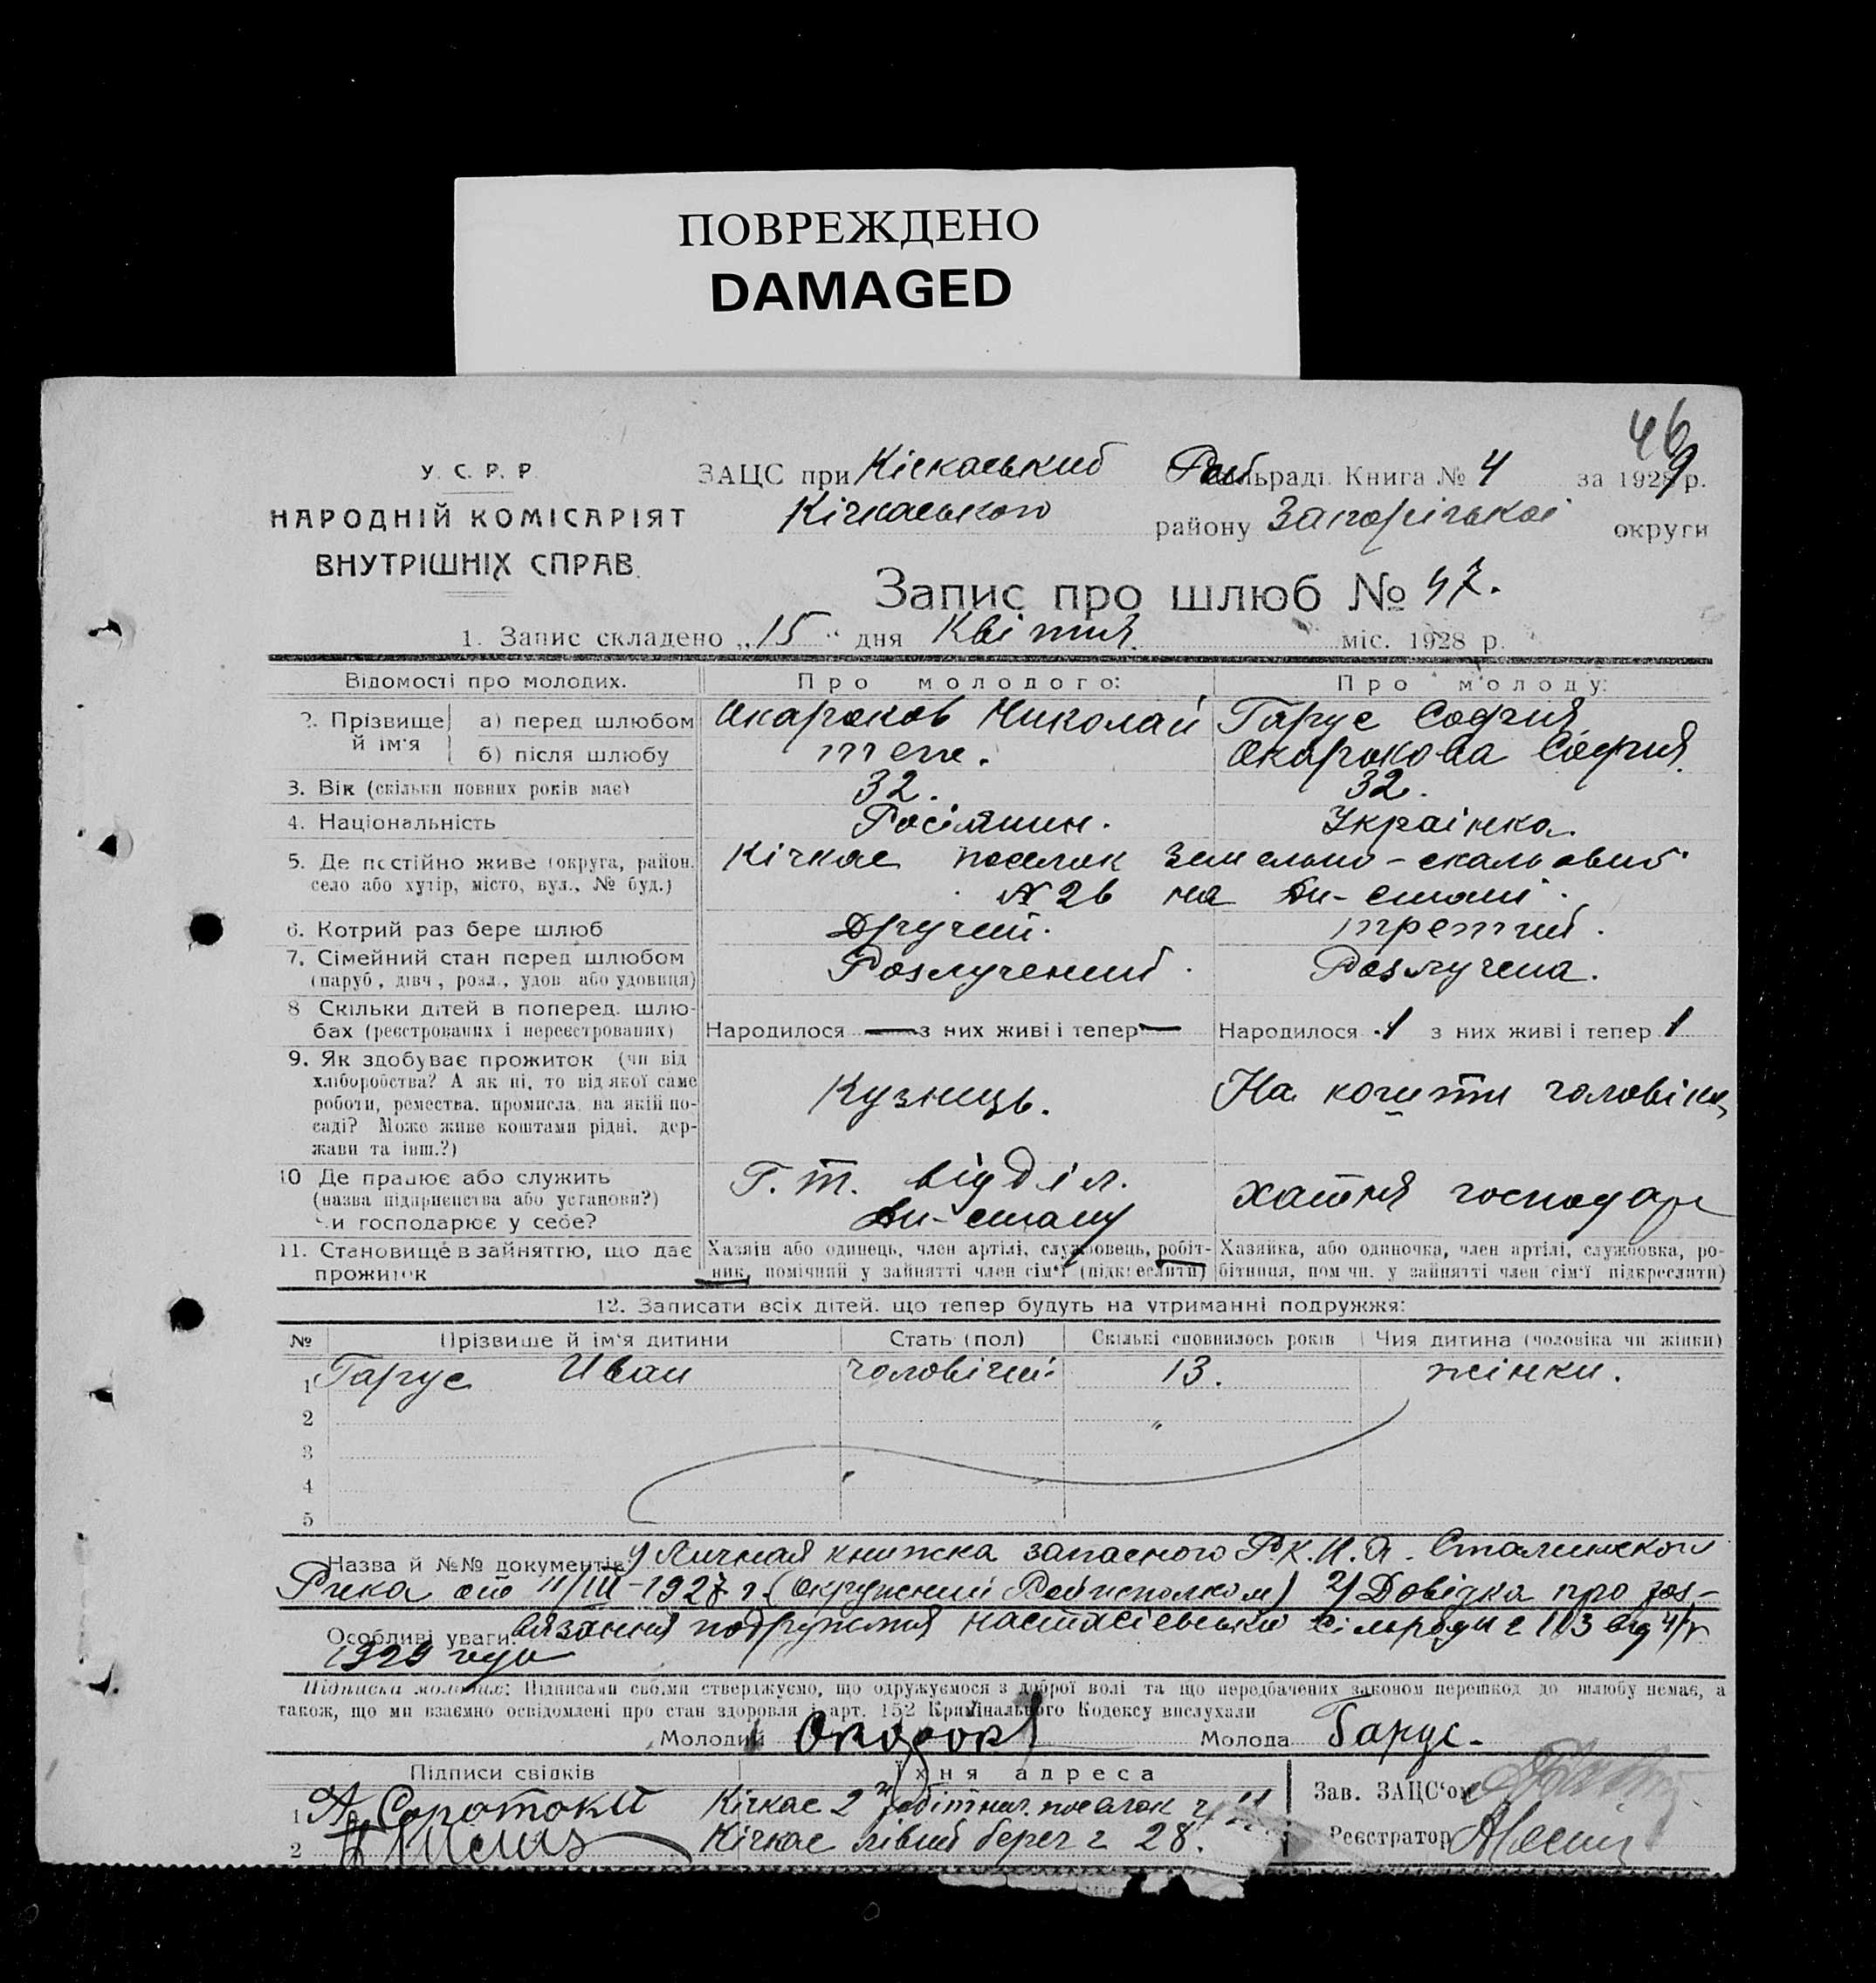 ПОВРЕЖДЕНО
DAMAGED
46
У. С. Р. Р.
НАРОДНІЙ КОМІСАРІЯТ
ВНУТРІШНІХ СПРАВ.
ЗАЦС при Кічкаський сільраді. Книга № 4 за 1929 р.
Кічкаського району Запорізької округи
Запис про шлюб № 47.
1. Запис складено „15“ дня Квітня міс. 1928 р.
Відомості про молодих. Про молодого: Про молоду:
2. Прізвище й ім'я а) перед шлюбом Окароков Николай Гарус София
б) після шлюбу теж. Окарокова София
3. Вік (скільки повних років має) 32. 32.
4. Національність Росіянин. Українка.
5. Де постійно живе (округа, район, Кічкас поселок Земельно-скальовий
село або хутір, місто, вул., № буд.) № 26 на Дн-стані.
6. Котрий раз бере шлюб Другий. третий.
7. Сімейний стан перед шлюбом Розлучений. Розлучена.
(паруб., дівч., розл., удов. або удовиця)
8 Скільки дітей в поперед. шлю-
бах (реєстрованих і нереєстрованих) Народилося — з них живі і тепер — Народилося 1 з них живі і тепер 1
9. Як здобуває прожиток (чи від
хліборобства? А як ні, то від якої саме
роботи, ремества, промисла, на якій по- Кузнець. На кошти чоловіка
саді? Може живе коштами рідні, дер-
жави та інш.?)
10 Де працює або служить Г. т. відділ. хатня господар
(назва підприємства або установи?) Дн-стану
Чи господарює у себе?
11. Становище в зайняттю, що дає Хазяїн або одинець, член артілі, службовець, робіт- Хазяйка, або одиночка, член артілі, службовка, ро-
прожиток ник, помічний у зайнятті член сім'ї (підкреслити) бітниця, пом чн. у зайнятті член сім'ї підкреслити)
12. Записати всіх дітей, що тепер будуть на утриманні подружжя:
№ Прізвище й ім'я дитини Стать (пол) Скількі сповнилось років Чия дитина (чоловіка чи жінки)
1 Гарус Иван чоловічий. 13. жінки.
2
3
4
5
Назва й №№ документів 1/ Личная книжка запасного Р.К.К.А. Сталинского
Рика от 11/III-1927 г. (окружений Райисполком) 2/ Довідка про роз-
Особливі уваги: вязання подружжя настасієвської сільради г 103 від 4/IV
1929 году
Підписка молодих: Підписами своїми стверджуємо, що одружуємося з доброї волі та що передбачених законом перешкод до шлюбу немає, а
також, що ми взаємно освідомлені про стан здоровля і арт. 152 Кримінального Кодексу вислухали
Молодий Окарок Молода Гарус.
Підписи свідків Їхня адреса
1 Соротокий Кічкас 2й робітнич. поселок ч 11 Зав. ЗАЦС'ом
2 Кічкас лівий берег г 28. Реєстратор